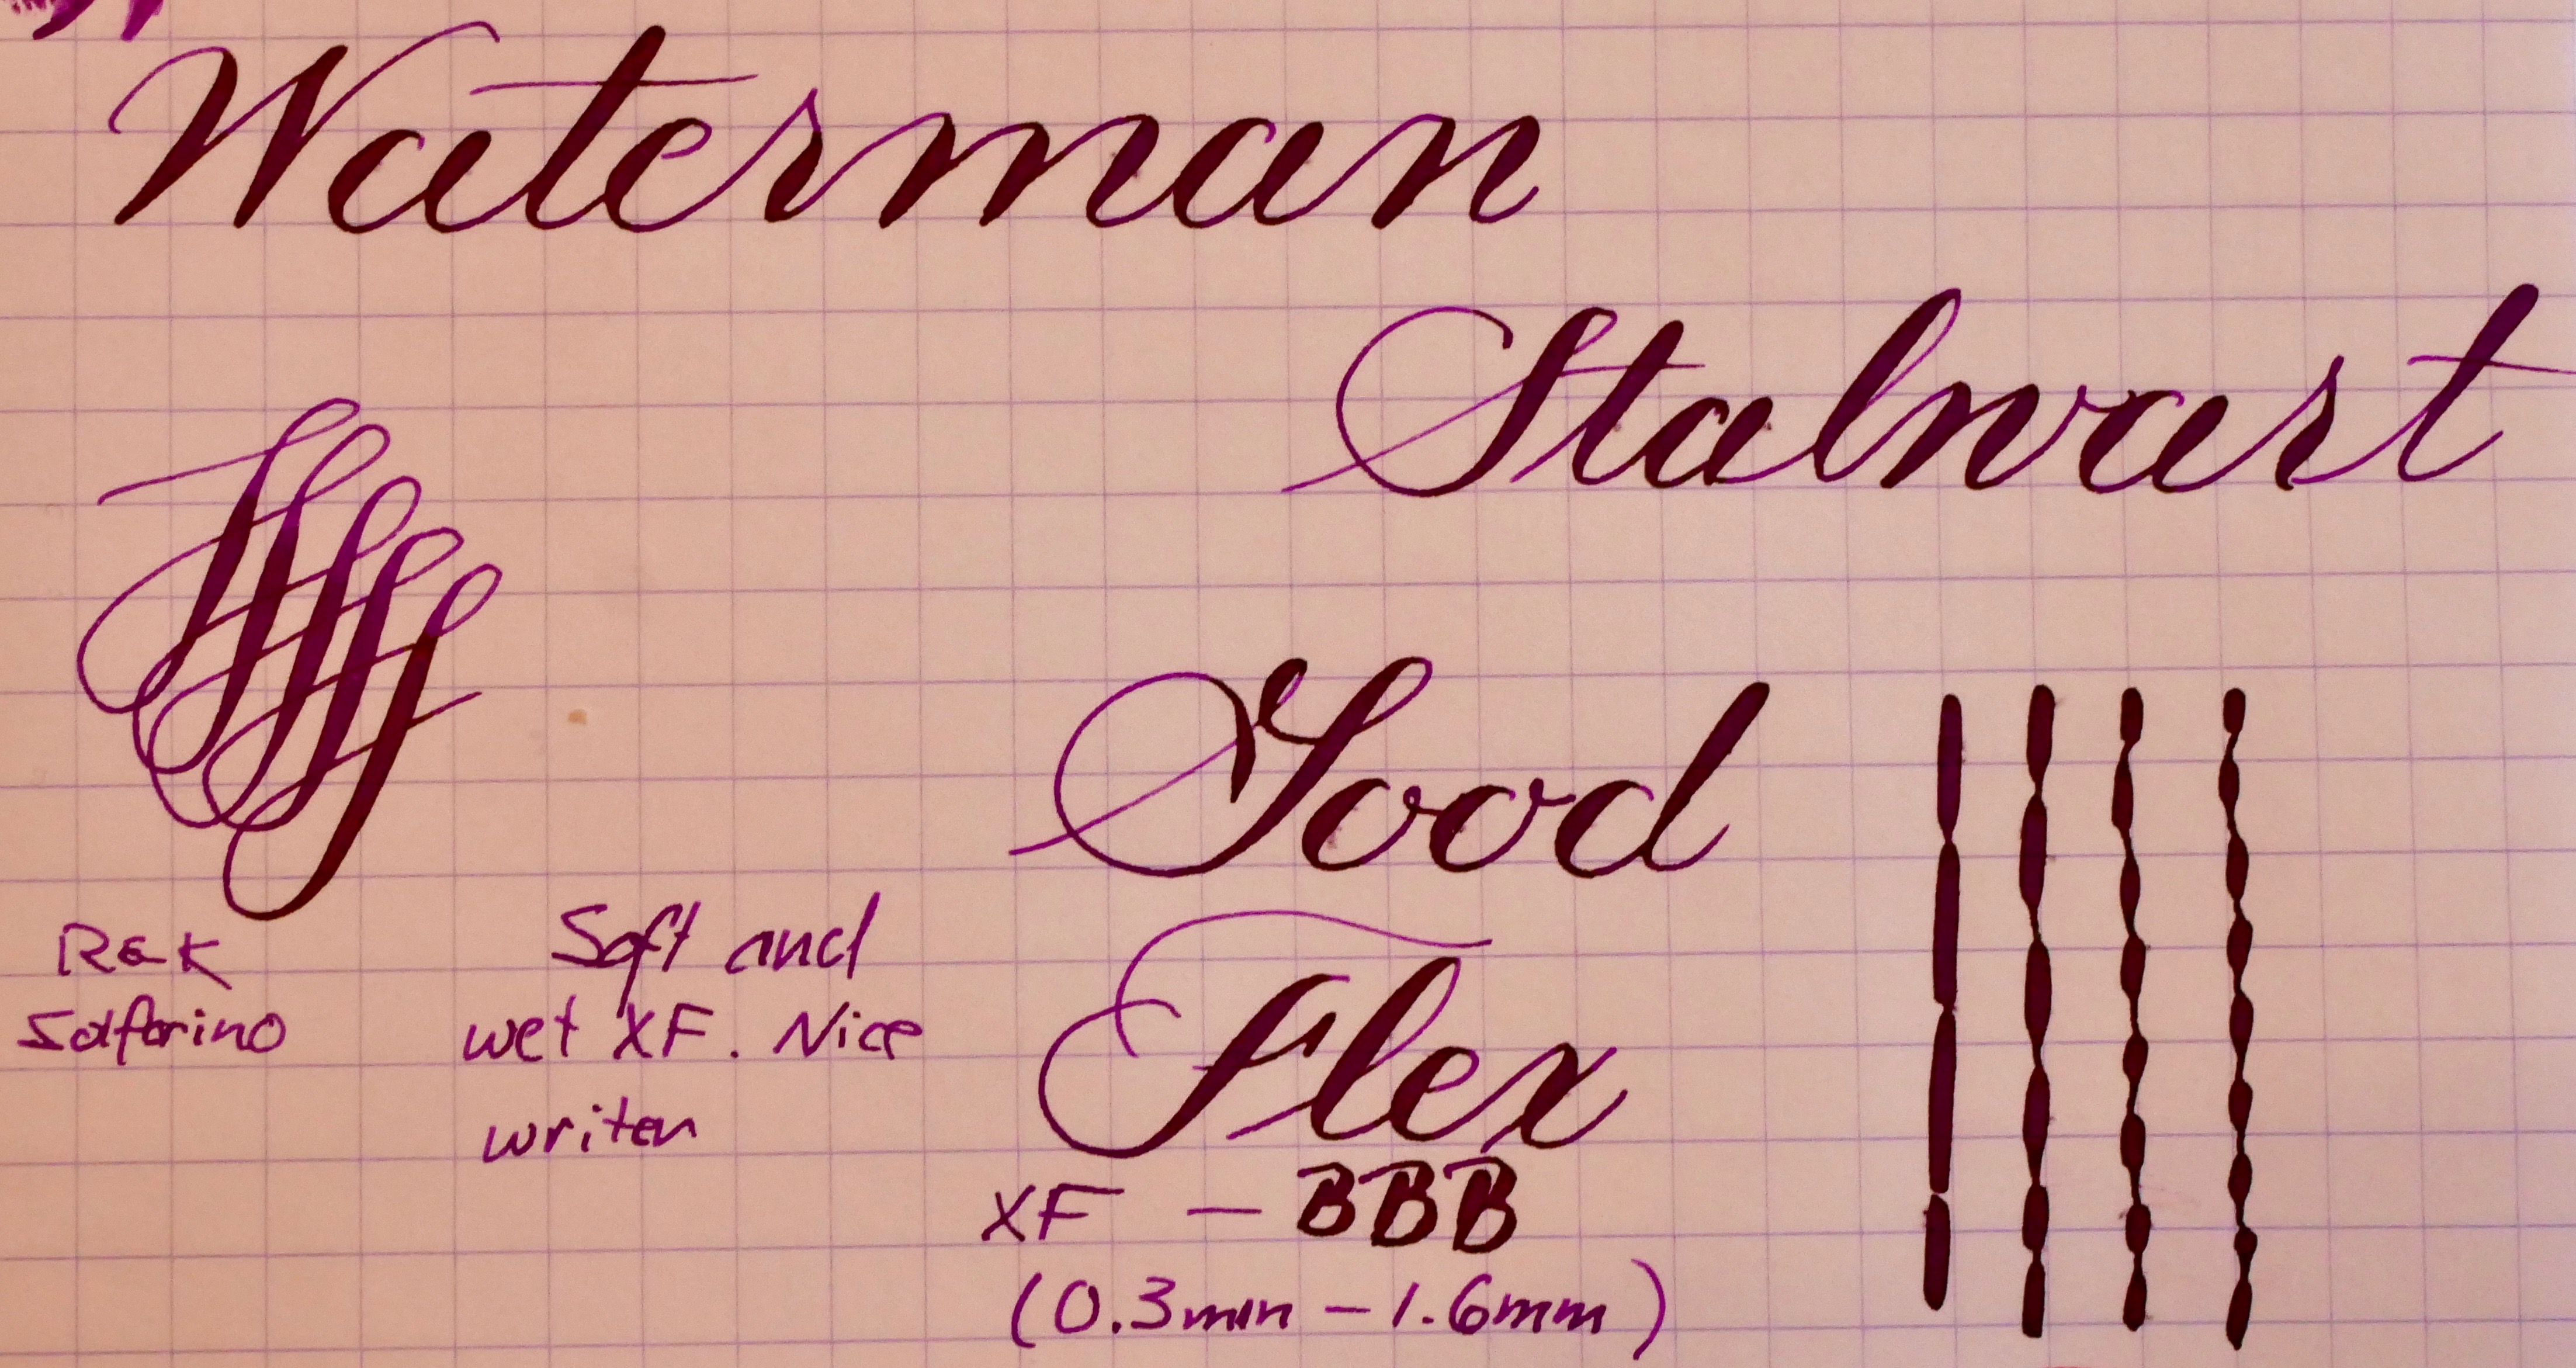 Waterman
Stalwart
Good
Flex
XF — BBB
(0.3mm – 1.6mm)
R&K
Solferino
Soft and
wet XF. Nice
writer